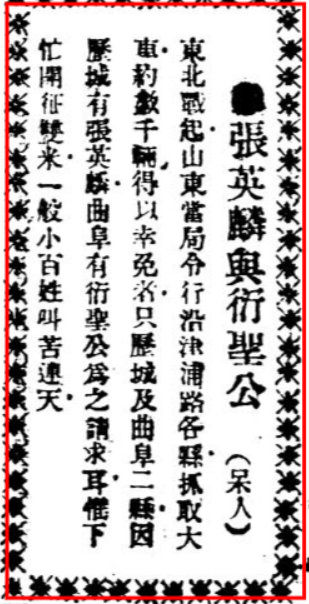 張英麟與衍聖公 (呆人)
東北戰起山東當局令行沿津浦路各縣抓取大
車約數千輛得以幸免者只歷城及曲阜二縣因
歷城有張英麟曲阜有衍聖公爲之請求耳惟下
忙開征雙米一般小百姓叫苦連天